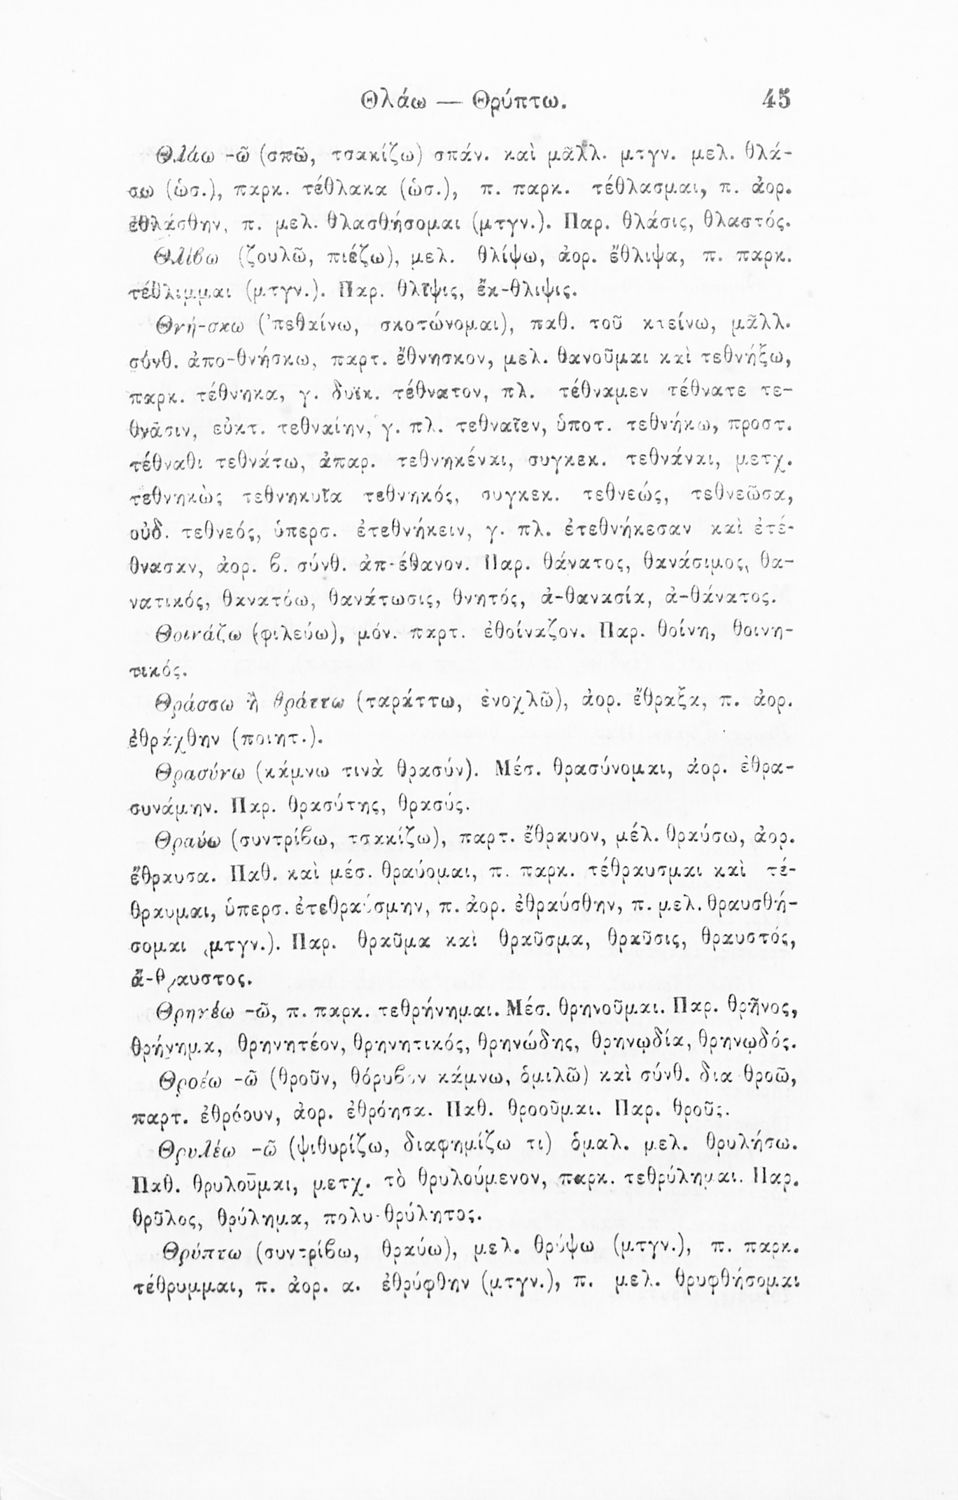 Θλάω — Θρύπτω. 45
Θλάω -ῶ (σπῶ, τσακίζω) σπάν. καὶ μᾶλλ. μτγν. μελ. θλά-
σω (ὡσ.), παρκ. τέθλακα (ὡσ.), π. παρκ. τέθλασμαι, π. ἀορ.
ἐθλάσθην, π. μελ. θλασθήσομαι (μτγν.). Παρ. θλάσις, θλαστός.
Θλίβω (ζουλῶ, πιέζω), μελ. θλίψω, ἀορ. ἔθλιψα, π. παρκ.
τέθλιμμαι (μτγν.). Παρ. θλῖψις, ἔκ-θλιψις.
Θνή-σκω (’πεθαίνω, σκοτώνομαι), παθ. τοῦ κτείνω, μᾶλλ.
σύνθ. ἀπο-θνήσκω, παρτ. ἔθνησκον, μελ. θανοῦμαι καὶ τεθνήξω,
παρκ. τέθνηκα, γ. δυϊκ. τέθνατον, πλ. τέθναμεν τέθνατε τε-
θνᾶσιν, εὐκτ. τεθναίην, γ. πλ. τεθναῖεν, ὑποτ. τεθνήκω, προστ.
τέθναθι τεθνάτω, ἀπαρ. τεθνηκέναι, συγκεκ. τεθνάναι, μετχ.
τεθνηκὼς τεθνηκυῖα τεθνηκός, συγκεκ. τεθνεώς, τεθνεῶσα,
οὐδ. τεθνεός, ὑπερσ. ἐτεθνήκειν, γ. πλ. ἐτεθνήκεσαν καὶ ἐτέ-
θνασαν, ἀορ. β. σύνθ. ἀπ-έθανον. Παρ. θάνατος, θανάσιμος, θα-
νατικός, θανατόω, θανάτωσις, θνητός, ἀ-θανασία, ἀ-θάνατος.
Θοινάζω (φιλεύω), μόν. παρτ. ἐθοίναζον. Παρ. θοίνη, θοινη-
τικός.
Θράσσω ἢ θράττω (ταράττω, ἐνοχλῶ), ἀορ. ἔθραξα, π. ἀορ.
ἐθράχθην (ποιητ.).
Θρασύνω (κάμνω τινὰ θρασύν). Μέσ. θρασύνομαι, ἀορ. ἐθρα-
συνάμην. Παρ. θρασύτης, θρασύς.
Θραύω (συντρίβω, τσακίζω), παρτ. ἔθραυον, μέλ. θραύσω, ἀορ.
ἔθραυσα. Παθ. καὶ μέσ. θραύομαι, π. παρκ. τέθραυσμαι καὶ τέ-
θραυμαι, ὑπερσ. ἐτεθραύσμην, π. ἀορ. ἐθραύσθην, π. μελ. θραυσθή-
σομαι (μτγν.). Παρ. θραῦμα καὶ θραῦσμα, θραῦσις, θραυστός,
ἄ-θραυστος.
Θρηνέω -ῶ, π. παρκ. τεθρήνημαι. Μέσ. θρηνοῦμαι. Παρ. θρῆνος,
θρήνημα, θρηνητέον, θρηνητικός, θρηνώδης, θρηνῳδία, θρηνῳδός.
Θροέω -ῶ (θροῦν, θόρυβον κάμνω, ὁμιλῶ) καὶ σύνθ. δια θροῶ,
παρτ. ἐθρόουν, ἀορ. ἐθρόησα. Παθ. θροοῦμαι. Παρ. θροῦς.
Θρυλέω -ῶ (ψιθυρίζω, διαφημίζω τι) ὁμαλ. μελ. θρυλήσω.
Παθ. θρυλοῦμαι, μετχ. τὸ θρυλούμενον, παρκ. τεθρύλημαι. Παρ.
θρῦλος, θρύλημα, πολυ-θρύλητος.
Θρύπτω (συντρίβω, θραύω), μελ. θρύψω (μτγν.), π. παρκ.
τέθρυμμαι, π. ἀορ. α. ἐθρύφθην (μτγν.), π. μελ. θρυφθήσομαι